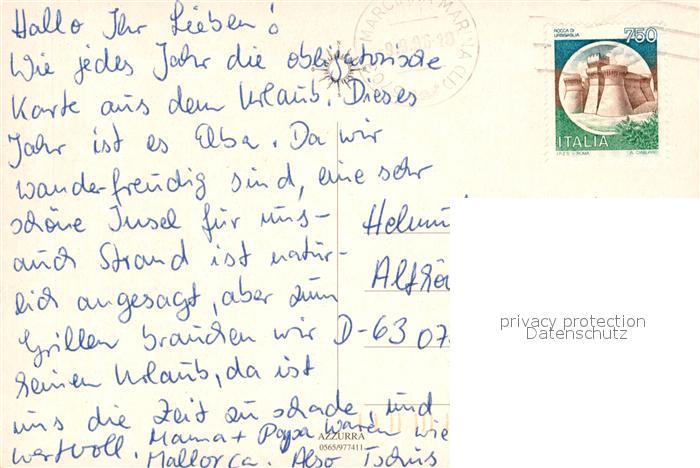 Hallo Ihr Lieben!
Wie jedes Jahr die obligatorische
Karte aus dem Urlaub. Dieses
Jahr ist es Elba. Da wir
wanderfreudig sind, eine sehr
schöne Insel für uns-
auch Strand ist natür-
lich angesagt, aber zum
Grillen brauchen wir
keinen Urlaub, da ist
uns die Zeit zu schade, und
wertvoll. Mama + Papa waren wie
Mallorca. Also Tschüs
MARCIANA MARINA (LI)
ROCCA DI
URBISAGLIA
750
ITALIA
I.P.Z.S. - ROMA
Helmut
D-6307
privacy protection
Datenschutz
AZZURRA
0565/977411